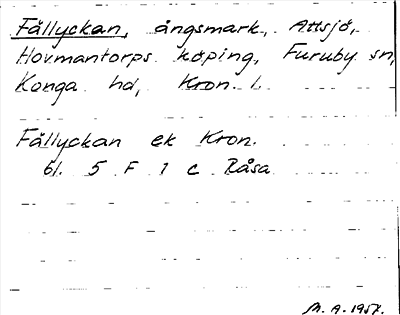 Fållyckan, ängsmark, Attsjö,
Hovmantorps köping, Furuby sn,
Konga hd, Kron. l.
Fållyckan ek Kron.
bl. 5 F 1 c Råsa
M. A. 1957.